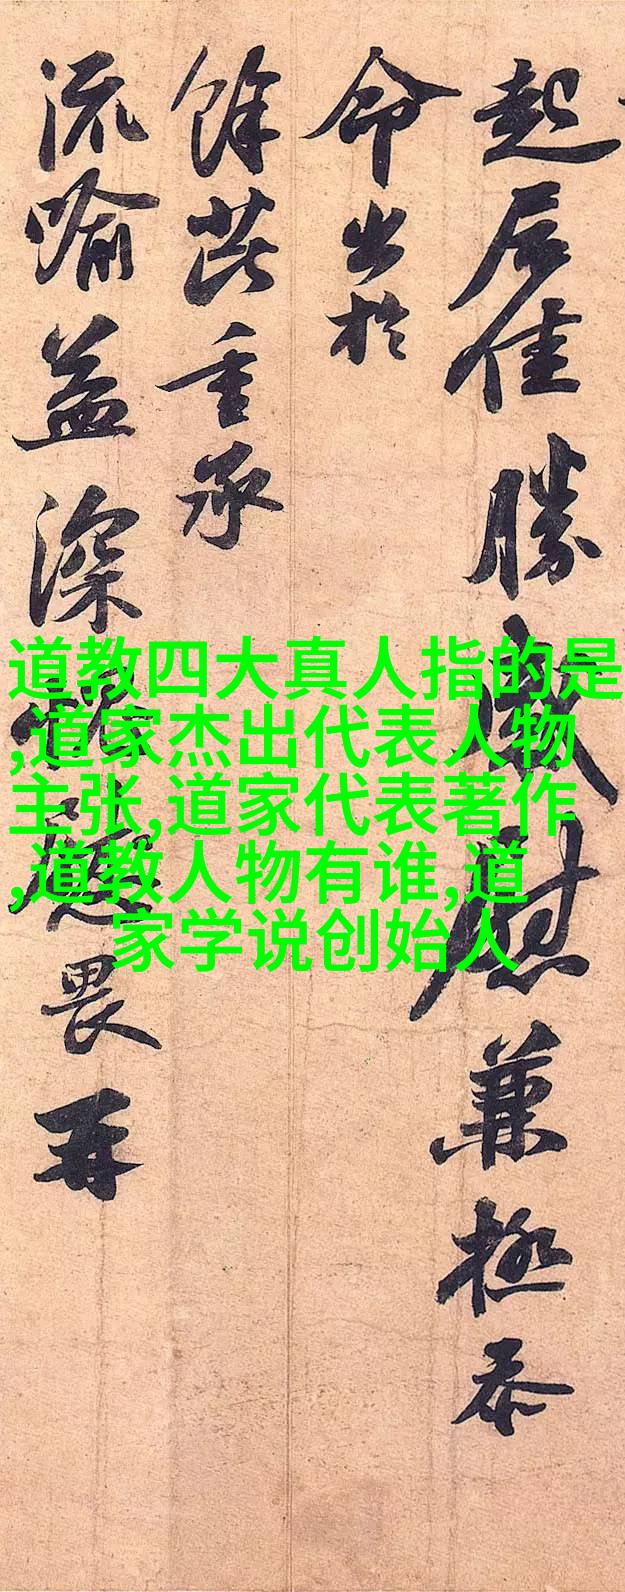 起居佳勝感慰兼極忝
命出於
餘芘重承
流喻益深畏再
道教四大真人指的是
,道家杰出代表人物
主张,道家代表著作
,道教人物有谁,道
家学说创始人